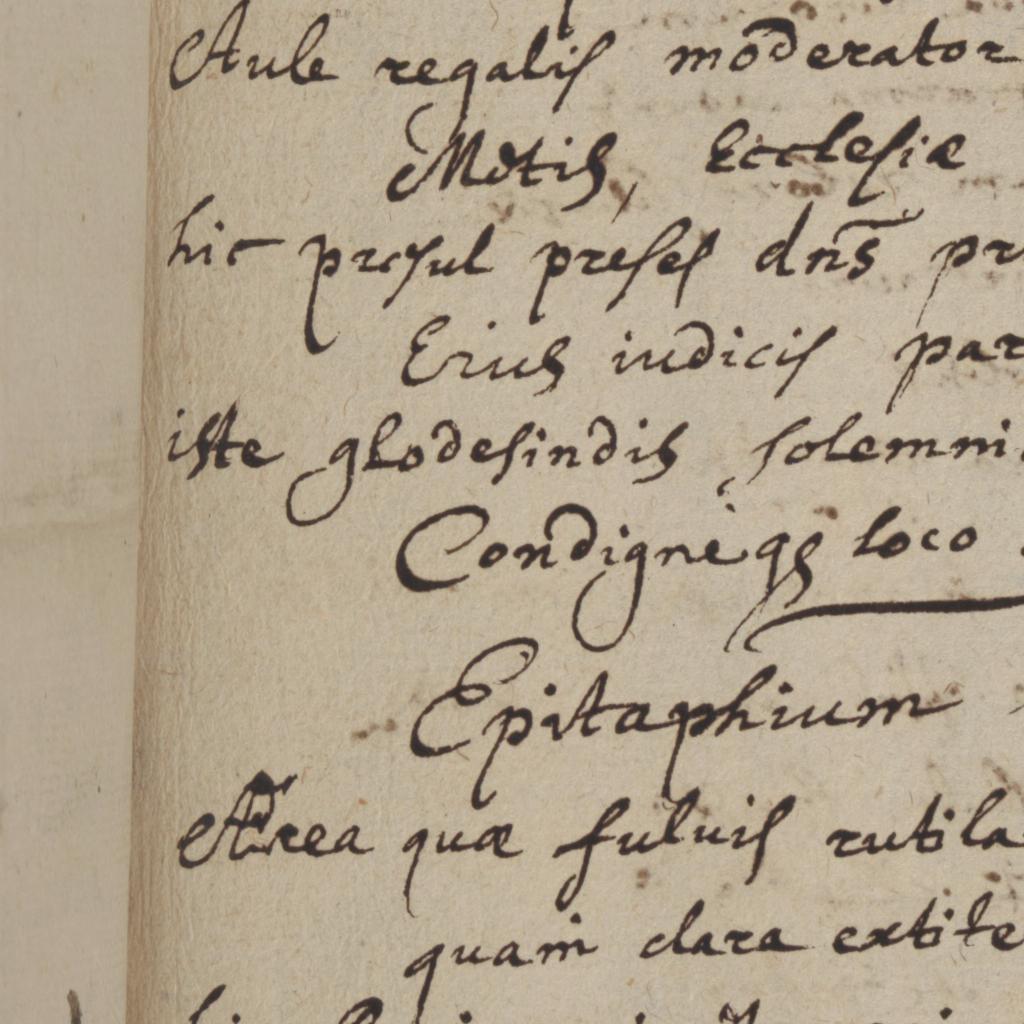 Aule regalis moderator
Metis, Ecclesiæ
hic presul preses dns̄ pr
Eius iudicis par
iste glodesindis solemni
Condigne qs loco
Epitaphium
Aurea quæ fuluis rutila
quam clara extite